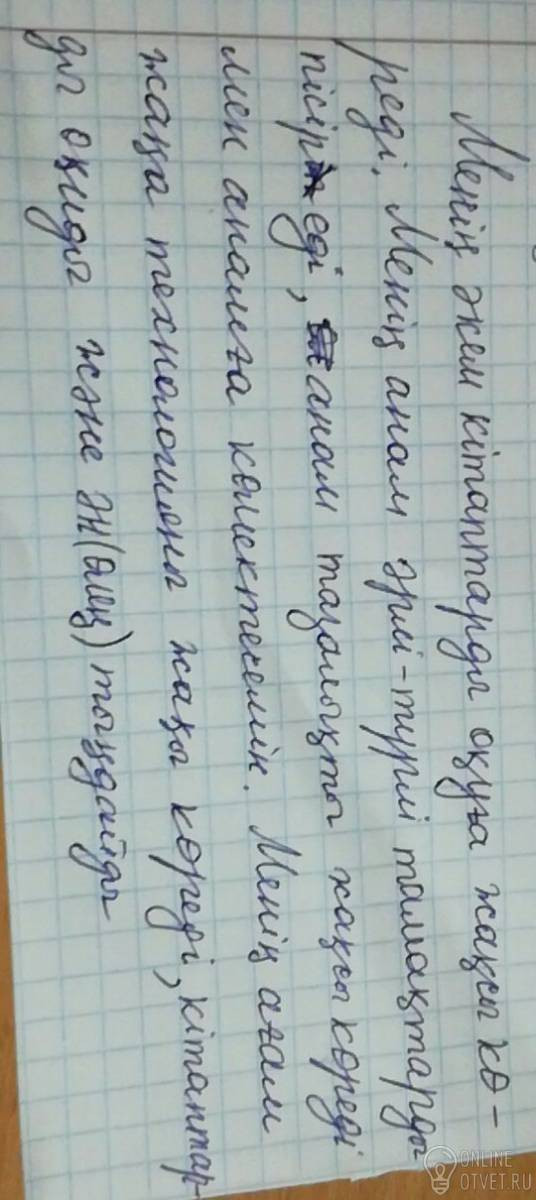 Менің әкем кітаптарды оқуға жақсы кө-
реді. Менің анам әрлі-түрлі тамақтарды
пісіреді, анам тазалықты жақсы көреді
мен анамға көмектесемін. Менің ағам
жаңа технологияны жақы көреді, кітаптар-
ды оқиды және ән(өлең) тыңдайды
ONLINE
OTVET.RU